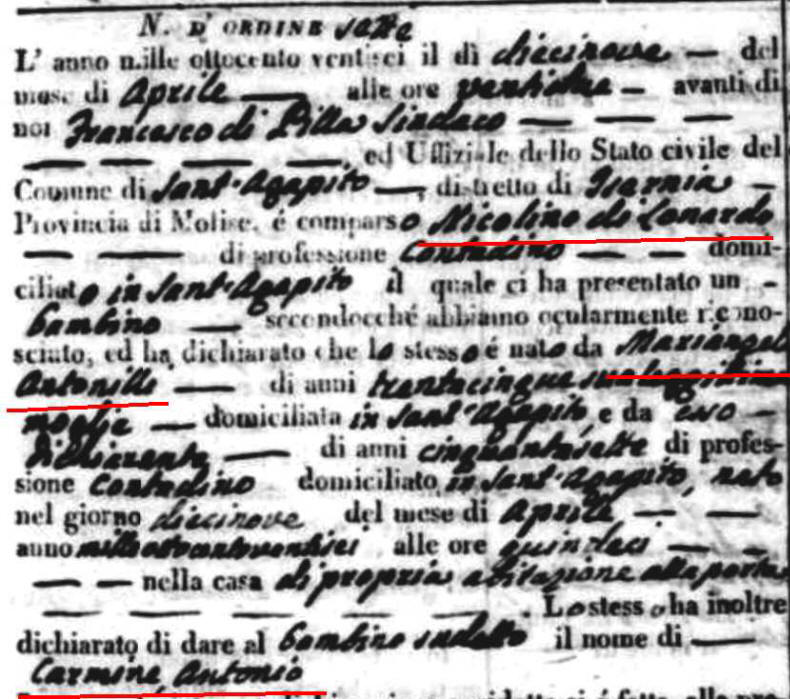 N. D' ORDINE sette
L' anno mille ottocento ventisei il dì diecinove — del
mese di Aprile — alle ore ventidue — avanti di
noi Francesco di Pilla Sindaco — — — —
— — — — ed Uffiziale dello Stato civile del
Comune di Sant'Agapito — distretto di Isernia —
Provincia di Molise, é comparso Nicolino di Lonardo
— — di professione Contadino — — domi-
ciliato in Sant'Agapito il quale ci ha presentato un -
bambino — secondocché abbiamo ocularmente ricono-
sciuto, ed ha dichiarato che lo stesso é nato da Mariangel
Antonilli — di anni trentacinque sua legittima
moglie — domiciliata in Sant'Agapito, e da esso —
Dichiarante — di anni cinquantasette di profes-
sione Contadino domiciliato in Sant'Agapito, nato
nel giorno diecinove del mese di Aprile — —
anno milleottocentoventisei alle ore quindeci — —
— — nella casa di propria abitazione alla porta
— — — — — . Lo stesso ha inoltre
dichiarato di dare al bambino sudetto il nome di —
Carmine Antonio